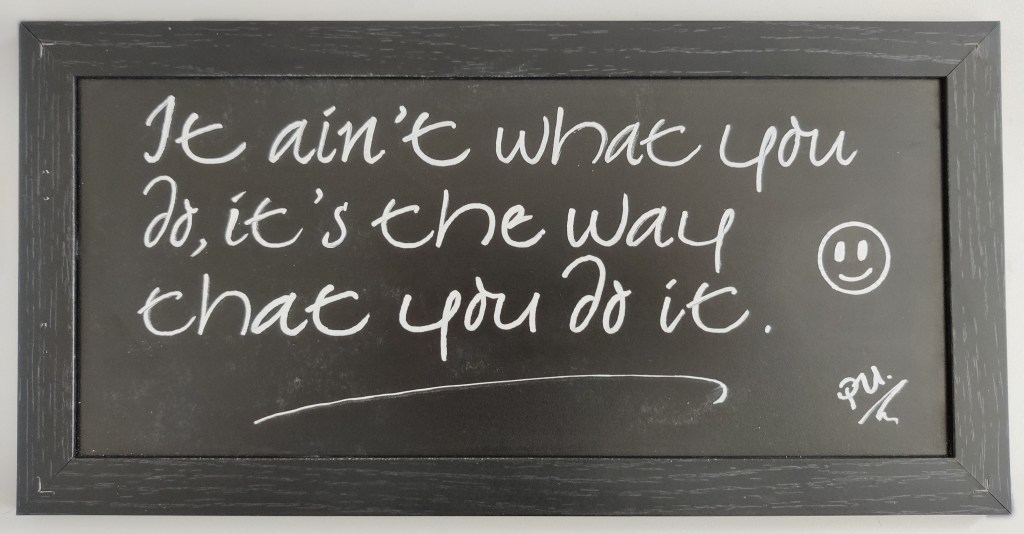 It ain't what you
do, it's the way
that you do it.